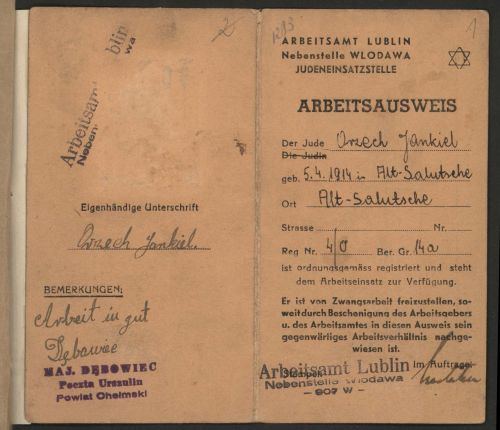 Arbeitsam
Neben
blin
wa
2
Eigenhändige Unterschrift
Orzech Jankiel.
BEMERKUNGEN:
Arbeit in gut
Dębowiec
MAJ. DĘBOWIEC
Poczta Urszulin
Powiat Chełmski
1
ARBEITSAMT LUBLIN
Nebenstelle WLODAWA
JUDENEINSATZSTELLE
ARBEITSAUSWEIS
Der Jude Orzech Jankiel
Die Judin
geb. 5.4.1914 in Alt-Salutsche
Ort Alt-Salutsche
Strasse Nr.
Reg Nr. 4/0 Ber. Gr. 14a
ist ordnungsgemäss registriert und steht
dem Arbeitseinsatz zur Verfügung.
Er ist von Zwangsarbeit freizustellen, so-
weit durch Beschenigung des Arbeitsgebers
u. des Arbeitsamtes in diesen Ausweis sein
gegenwärtiges Arbeitsverhältnis nachge-
wiesen ist.
Arbeitsamt Lublin Im Auftrage:
Nebenstelle Wlodawa
- 907 W -